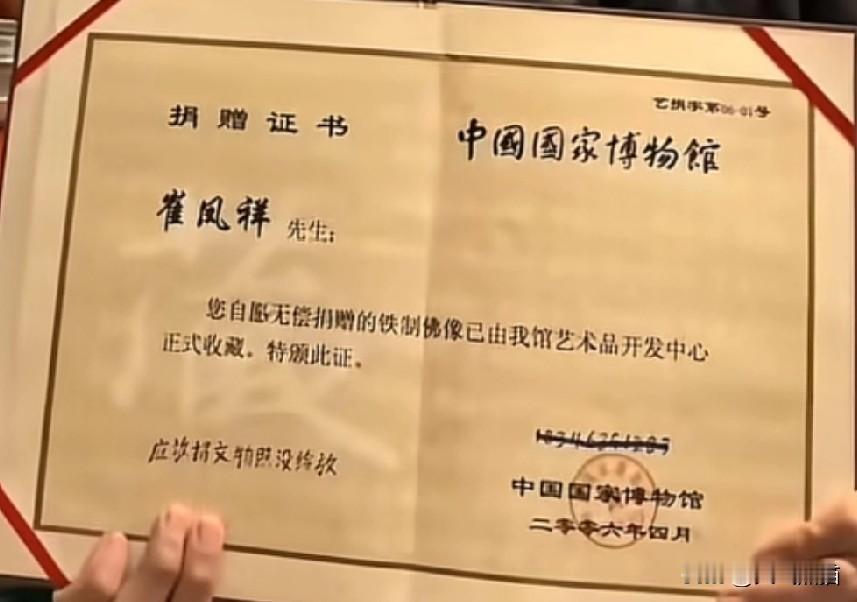 艺捐字第06-01号
捐赠证书
中國國家博物館
崔凤祥 先生：
您自愿无偿捐赠的铁制佛像已由我馆艺术品开发中心
正式收藏。特颁此证。
中国国家博物馆
二零零六年四月